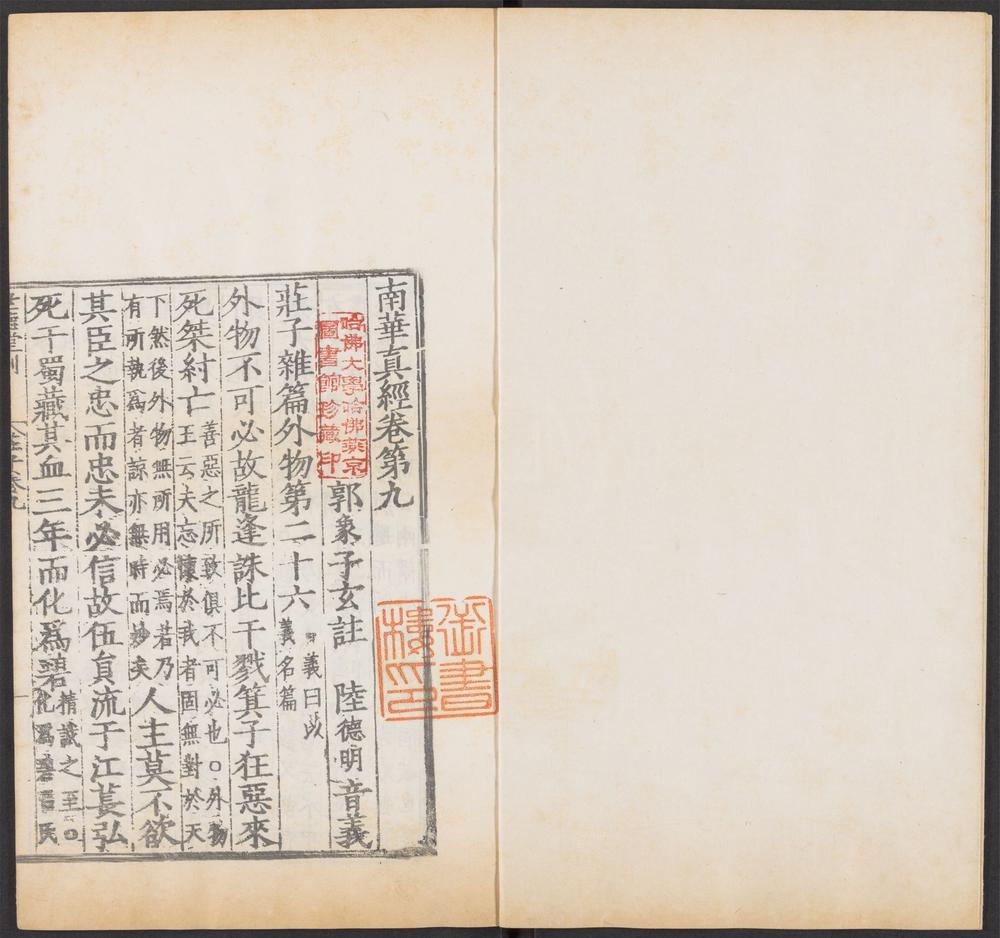 南華真經卷第九
郭象子玄註 陸德明音義
哈佛大學哈佛燕京
圖書館珍藏印
御書
樓印
莊子雜篇外物第二十六
義曰以
義名篇
外物不可必故龍逢誅比干戮箕子狂惡來
死桀紂亡
善惡之所致俱不可必也○外物
王云夫忘懷於我者固無對於天
下然後外物無所用必焉若乃
有所執爲者諒亦無時而妙矣
人主莫不欲
其臣之忠而忠未必信故伍員流于江萇弘
死于蜀藏其血三年而化爲碧
精誠之至○
化爲碧呂氏